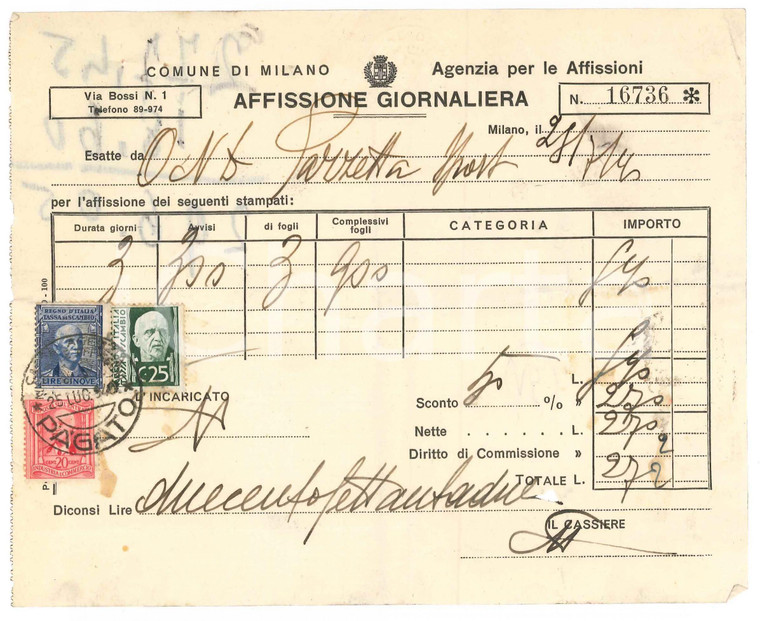 COMUNE DI MILANO
Agenzia per le Affissioni
Via Bossi N. 1
Telefono 89-974
AFFISSIONE GIORNALIERA
N. 16736 *
Milano, il
Esatte da O N D Gazzetta Sport
per l'affissione dei seguenti stampati:
Durata giorni Avvisi di fogli Complessivi fogli CATEGORIA IMPORTO
3 300 3 900 540
L. 540
Sconto 50 % » 270
Nette . . . . . . L. 270
Diritto di Commissione » 2
TOTALE L. 272
REGNO D'ITALIA
TASSA DI SCAMBIO
LIRE CINQUE
C. 25
25 LUG
PAGATO
20
L'INCARICATO
Diconsi Lire duecentosettantadue
IL CASSIERE